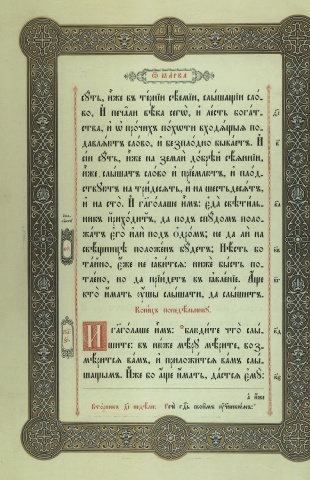 Ѿ МАРКА
сꙋть, и҆̀же въ те́рнїи сѣ́емїи, слы́шащїи сло́-
во, И҆ печа̑ли вѣ́ка сегѡ̀, и҆ ле́сть бога́т-
ства, и҆ ѡ҆ про́чихъ по́хѡти входѧ́щыѧ по-
давлѧ́ютъ сло́во, и҆ безпло́дно быва́етъ. И҆
сі́и сꙋ́ть, и҆̀же на землѝ до́брѣй сѣ́ѧннїи,
и҆̀же слы́шатъ сло́во и҆ прїе́млютъ, и҆ плод-
ствꙋ́ютъ на три́десѧть, и҆ на шестьдесѧ́тъ,
и҆ на сто̀. И҆ гл҃го́лаше и҆̀мъ: є҆да̀ свѣти́ль-
никъ прихо́дитъ, да под̾ спꙋ́домъ поло-
жа́тъ є҆го̀ и҆лѝ под̾ ѻ҆дро́мъ; не да́ ли на
свѣ́щницѣ поло́женъ бꙋ́детъ; Нѣ́сть бо
та́йно, є҆́же не ꙗ҆ви́тсѧ: нижѐ бы́сть по-
тае́но, но да прїи́детъ въ ꙗ҆вле́нїе. А҆́ще
кто̀ и҆́мать ᲂу҆́шы слы́шати, да слы́шитъ.
Коне́цъ понедѣ́льникꙋ.
И҆ гл҃го́лаше и҆̀мъ: блюди́те что̀ слы́-
шите: въ ню́же мѣ́рꙋ мѣ́рите, воз-
мѣ́ритсѧ ва́мъ, и҆ приложи́тсѧ ва́мъ слы́-
шащымъ. И҆́же бо а҆́ще и҆́мать, да́стсѧ є҆мꙋ̀:
а҆ и҆́же
Вто́рникъ д҃і недѣ́ли: Речѐ гдⷭ҇ь свои̑мъ ᲂу҆чн҃кѡ́мъ: